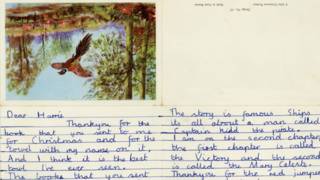 Dear Marrie
Thankyou for the
book that you sent to me
for Christmas and for the
towel with my name on it.
And I think it is the best
towel I've ever seen.
The books that you sent
The story is famous Ships
its all about a man called
Captain Kidd the pirate.
I am on the second chapter
the first chapter is called
the Victory and the second
is called "the Mary Celeste."
Thankyou for the red jumper